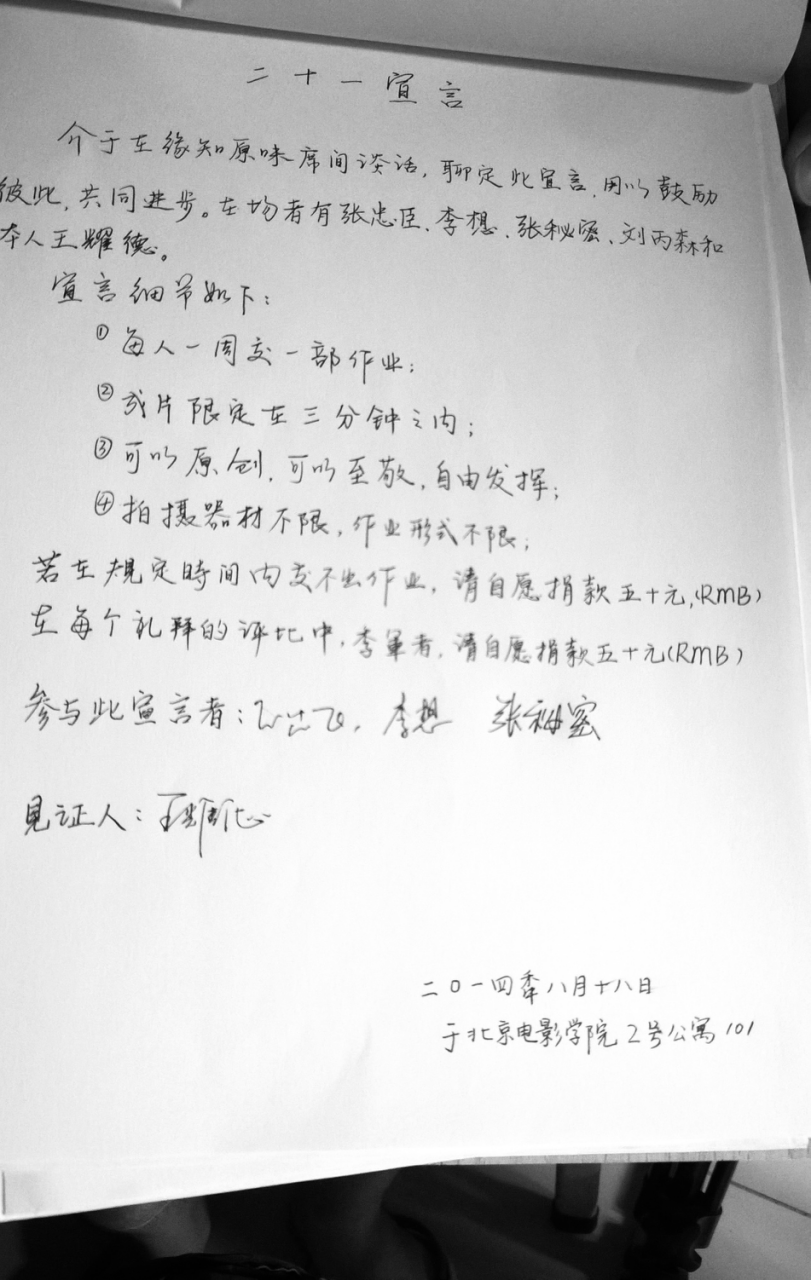 二十一宣言
介于在缘知原味席间谈话,聊定此宣言,用以鼓励
彼此,共同进步。在场者有张忠臣、李想、张秘密、刘丙森和
本人王耀德。
宣言细节如下:
①每人一周交一部作业;
②成片限定在三分钟之内;
③可以原创,可以至敬,自由发挥;
④拍摄器材不限,作业形式不限;
若在規定時间内交不出作业,请自愿捐款五十元,(RMB)
在每个礼拜的评比中,李軍者,请自愿捐款五十元(RMB)
参与此宣言者: 李想 张秘密
見证人:王耀德
二〇一四年八月十八日
于北京电影学院2号公寓101